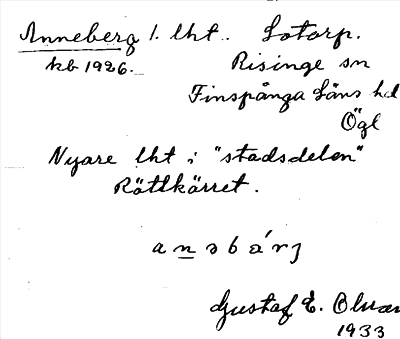 Anneberg 1. lht. Sotorp.
kb 1926. Risinge sn
Finspånga läns hd
Ögl
Nyare lht i "stadsdelen"
Röttkärret.
anəbárj
Gustaf E.
1933